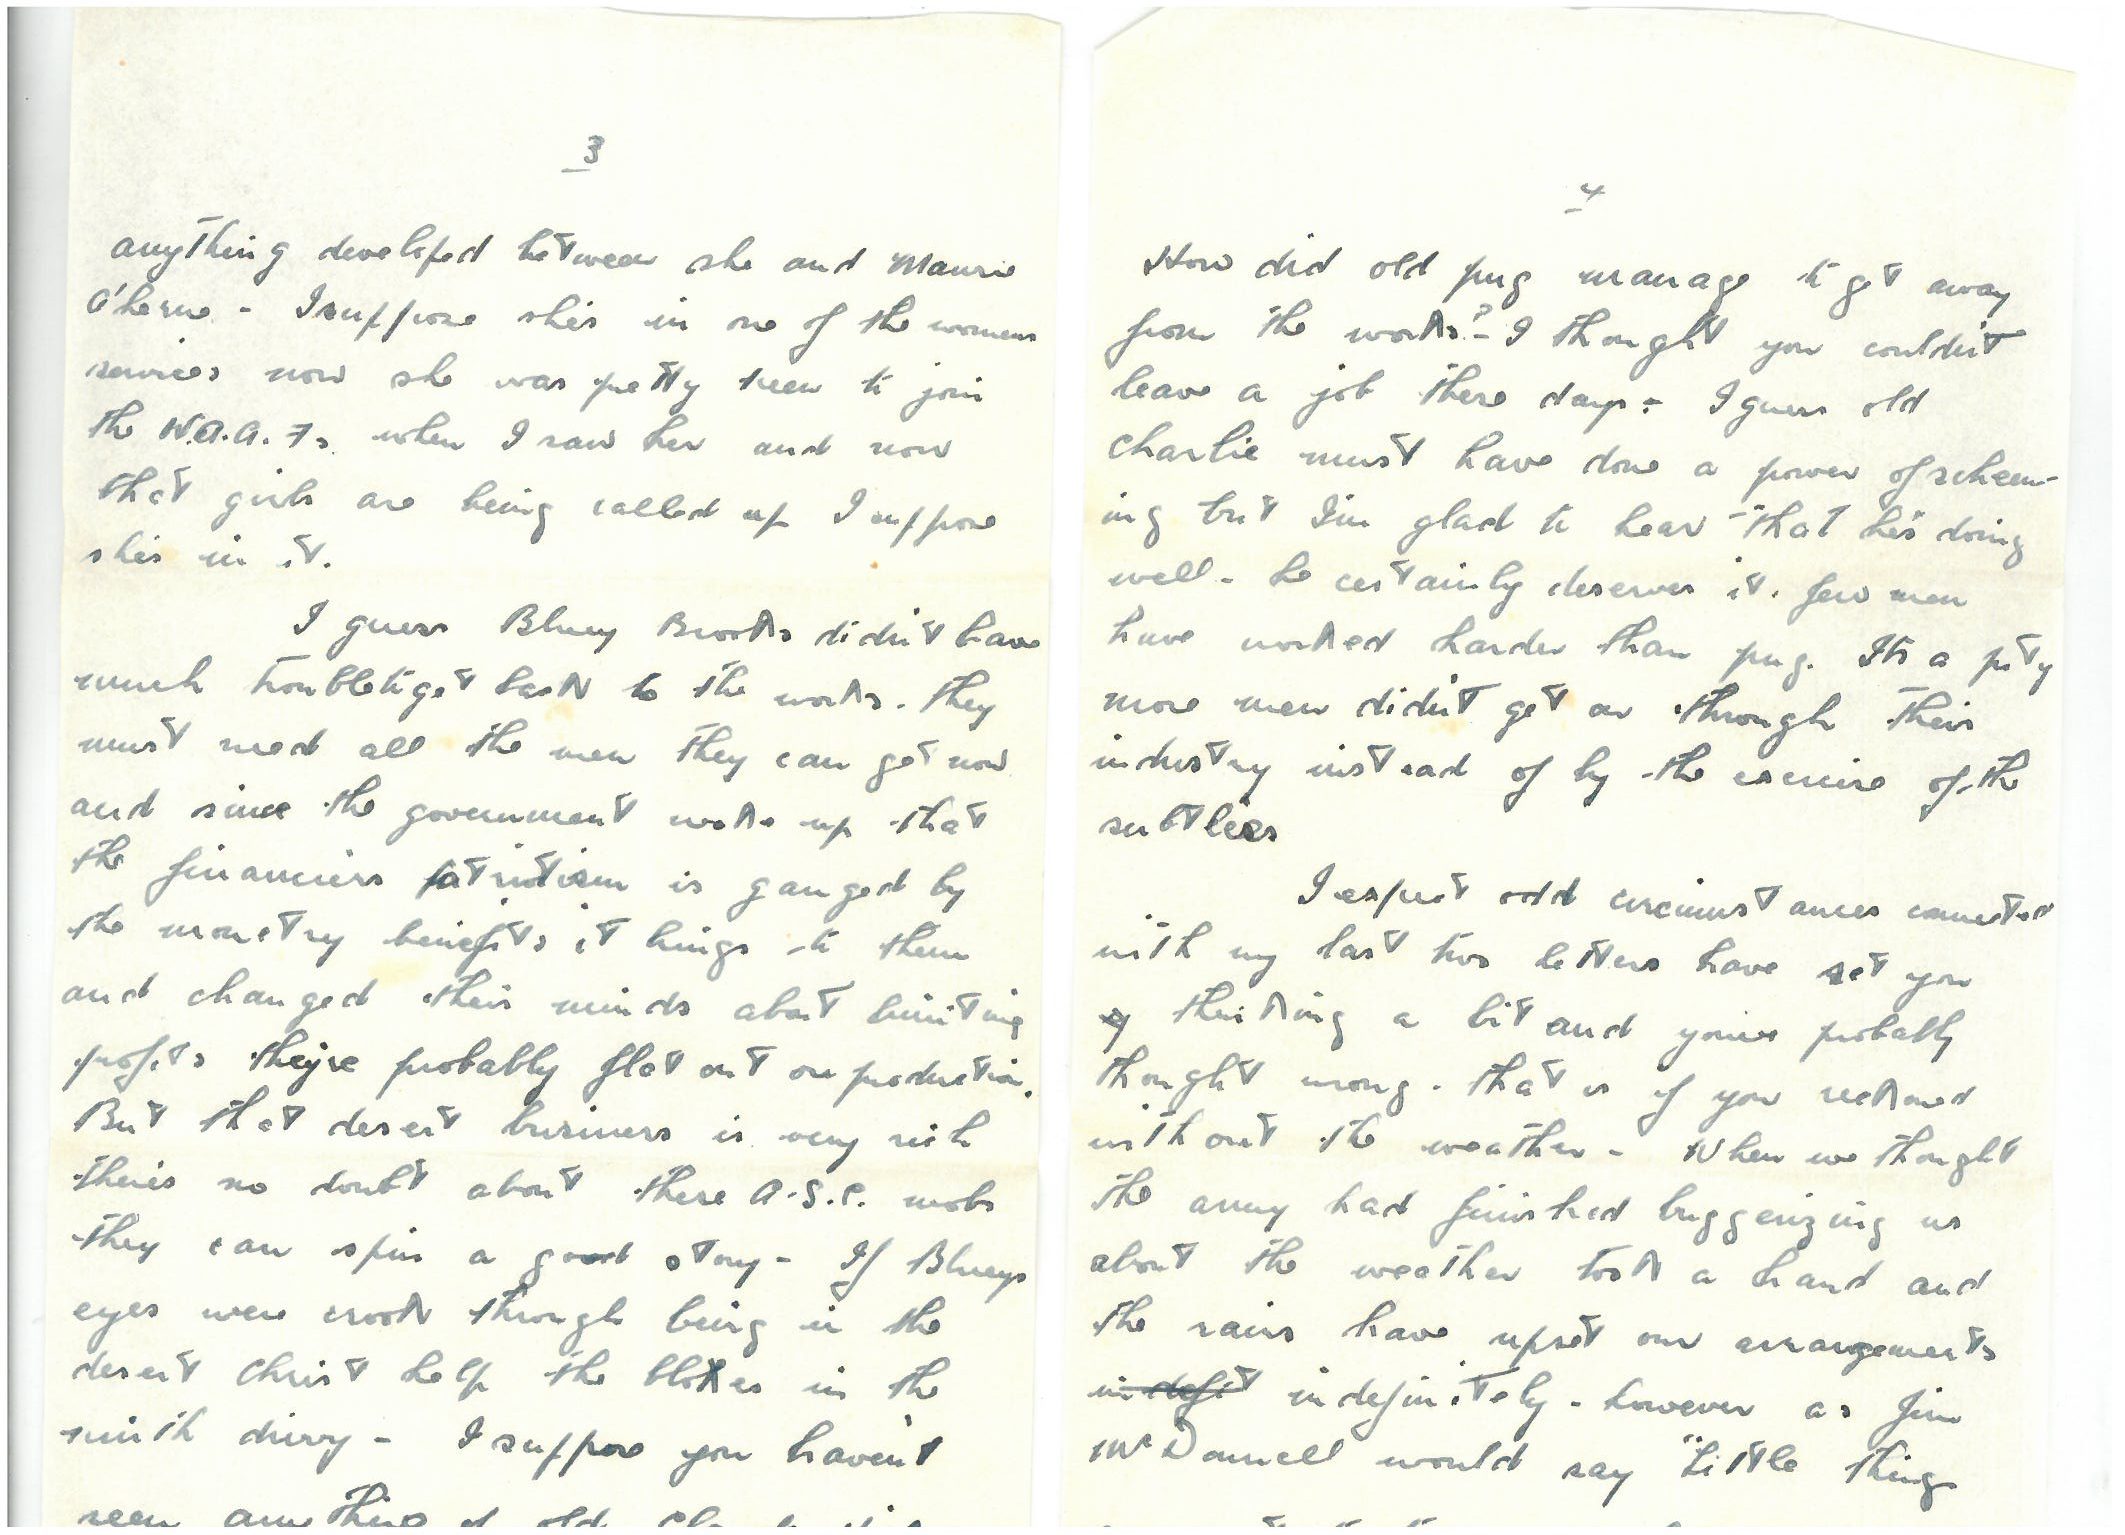 3
anything developed between she and Maurie
O'herne - I suppose shes in one of the womens
services now she was pretty keen to join
the W.A.A.Fs. when I saw her and now
that girls are being called up I suppose
shes in it.
I guess Bluey Brooks didn't have
much trouble to get back to the works. They
must need all the men they can get now
and since the government woke up that
the financiers patriotism is gauged by
the monetry benefits it brings to them
and changed their minds about limiting
profits they're probably flat out on production.
But that desert business is very rich
there's no doubt about these A.S.C. mobs
they can spin a good story - If Blueys
eyes were crook through being in the
desert Christ help the blokes in the
ninth divvy - I suppose you haven't
seen anything of old
4
How did old pug manage to get away
from the works? - I thought you couldn't
leave a job these days - I guess old
Charlie must have done a power of scheem-
ing but I'm glad to hear that he's doing
well - he certainly deserves it. few men
have worked harder than pug. Its a pity
more men didn't get on through their
industry instead of by the exercise of the
subtleies
I expect odd circumstances connected
with my last two letters have set you
thinking a bit and you've probably
thought wrong. that is if you reckoned
without the weather - When we thought
the army had finished buggerizing us
about the weather took a hand and
the rains have upset our arrangements
indefit indefinitely - however as Jim
McDonnell would say "Little things